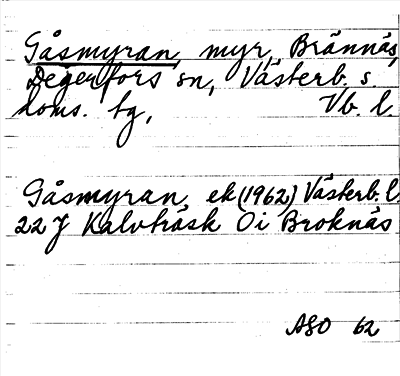 Gåsmyran, myr, Brännäs,
Degerfors sn, Västerb. s.
doms. tg, Vb. l.
Gåsmyran, ek (1962) Västerb. l
22 J Kalvträsk Oi Broknäs
ASO 62